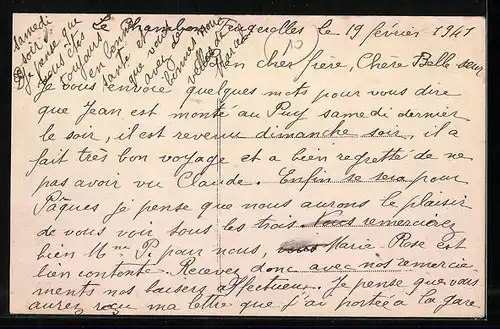 Le Chambon-Feugerolles le 19 février 1941
Mon cher frère, Chère Belle-sœur
Je vous envoie quelques mots pour vous dire
que Jean est monté au Puy samedi dernier
le soir, il est revenu dimanche soir, il a
fait très bon voyage et a bien regretté de ne
pas avoir vu Claude. Enfin se sera pour
Pâques je pense que nous aurons le plaisir
de vous voir tous les trois. Vous remercierez
bien Mme P. pour nous, Marie Rose est
bien contente. Recevez donc avec nos remercie-
ments nos baisers affectueux. Je pense que vous
aurez reçu ma lettre que j'ai portée à la gare
samedi
soir
Je pense que
vous êtes
toujours
en bonne
santé et
que vous
avez de
bonnes